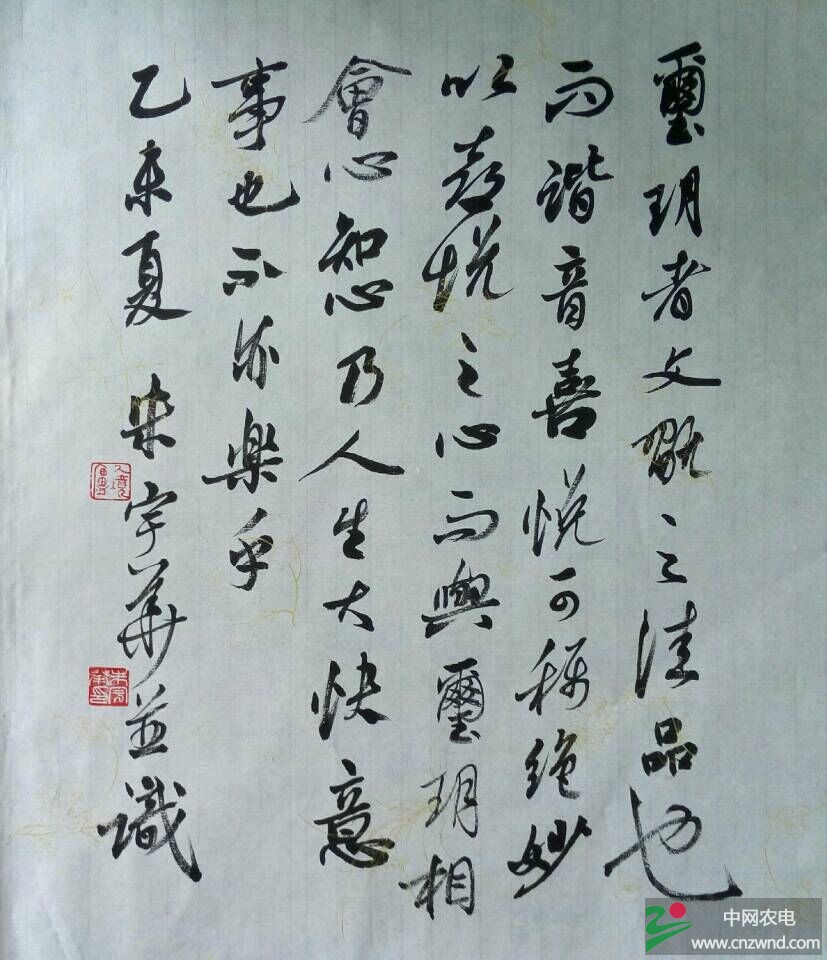 璽玥者文翫之佳品也
而諧音喜悦可稱絶妙
以喜悦之心而與璽玥相
會心知心乃人生大快意
事也不亦樂乎
乙未夏 朱宇華並識
中网农电
www.cnzwnd.com